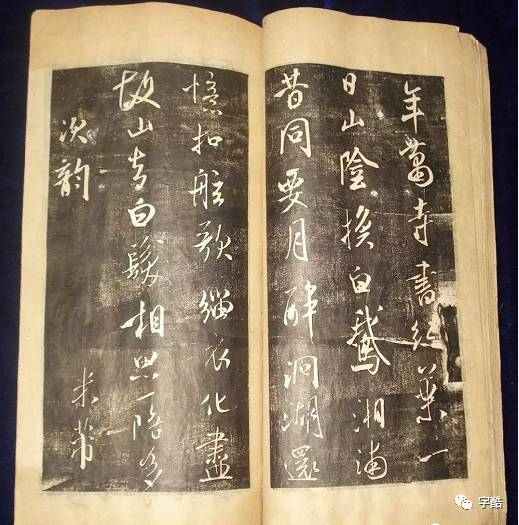 年蕭寺書經葉一
日山陰換白鵞湘浦
昔同要月醉洞湖還
憶扣舷歌緇衣化盡
故山去白髮相思一陪多
次韻
米芾
字酷